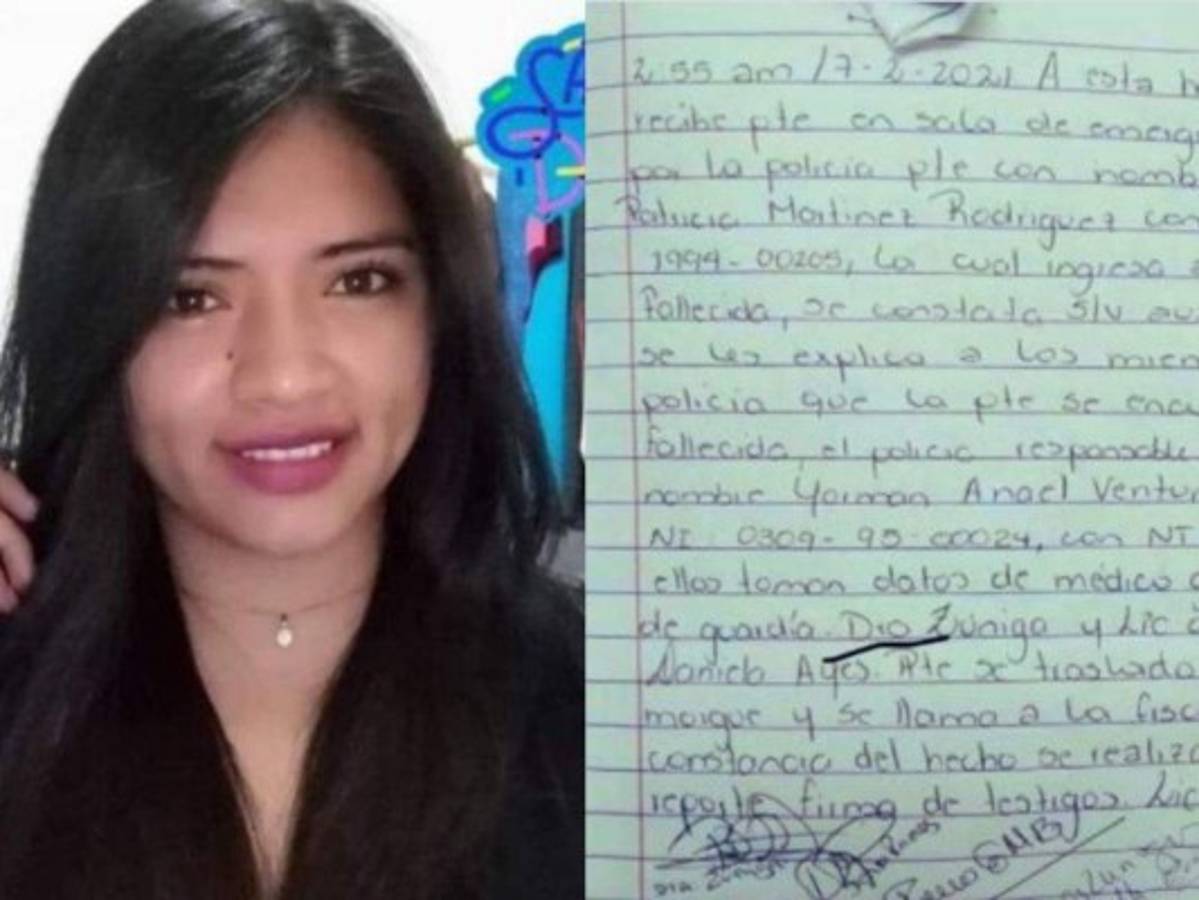 2 55 am 17-2-2021 A esta h
recibe pte en sala de emerg
por la policia pte con nomb
Patricia Martinez Rodriguez con
1994-00205, la cual ingresa
Fallecida, se constata S/V au
se les explica a los miem
policia que la pte se encu
fallecida, el policia responsable
nombre Yarman Anael Ventu
NI 0309-95-00024, con NI
ellos toman datos de médico
de guardia. Dra Zuniga y Lic
Pte se traslada
morgue y se llama a la fisc
constancia del hecho se realiza
reporte firma de testigos. Lic